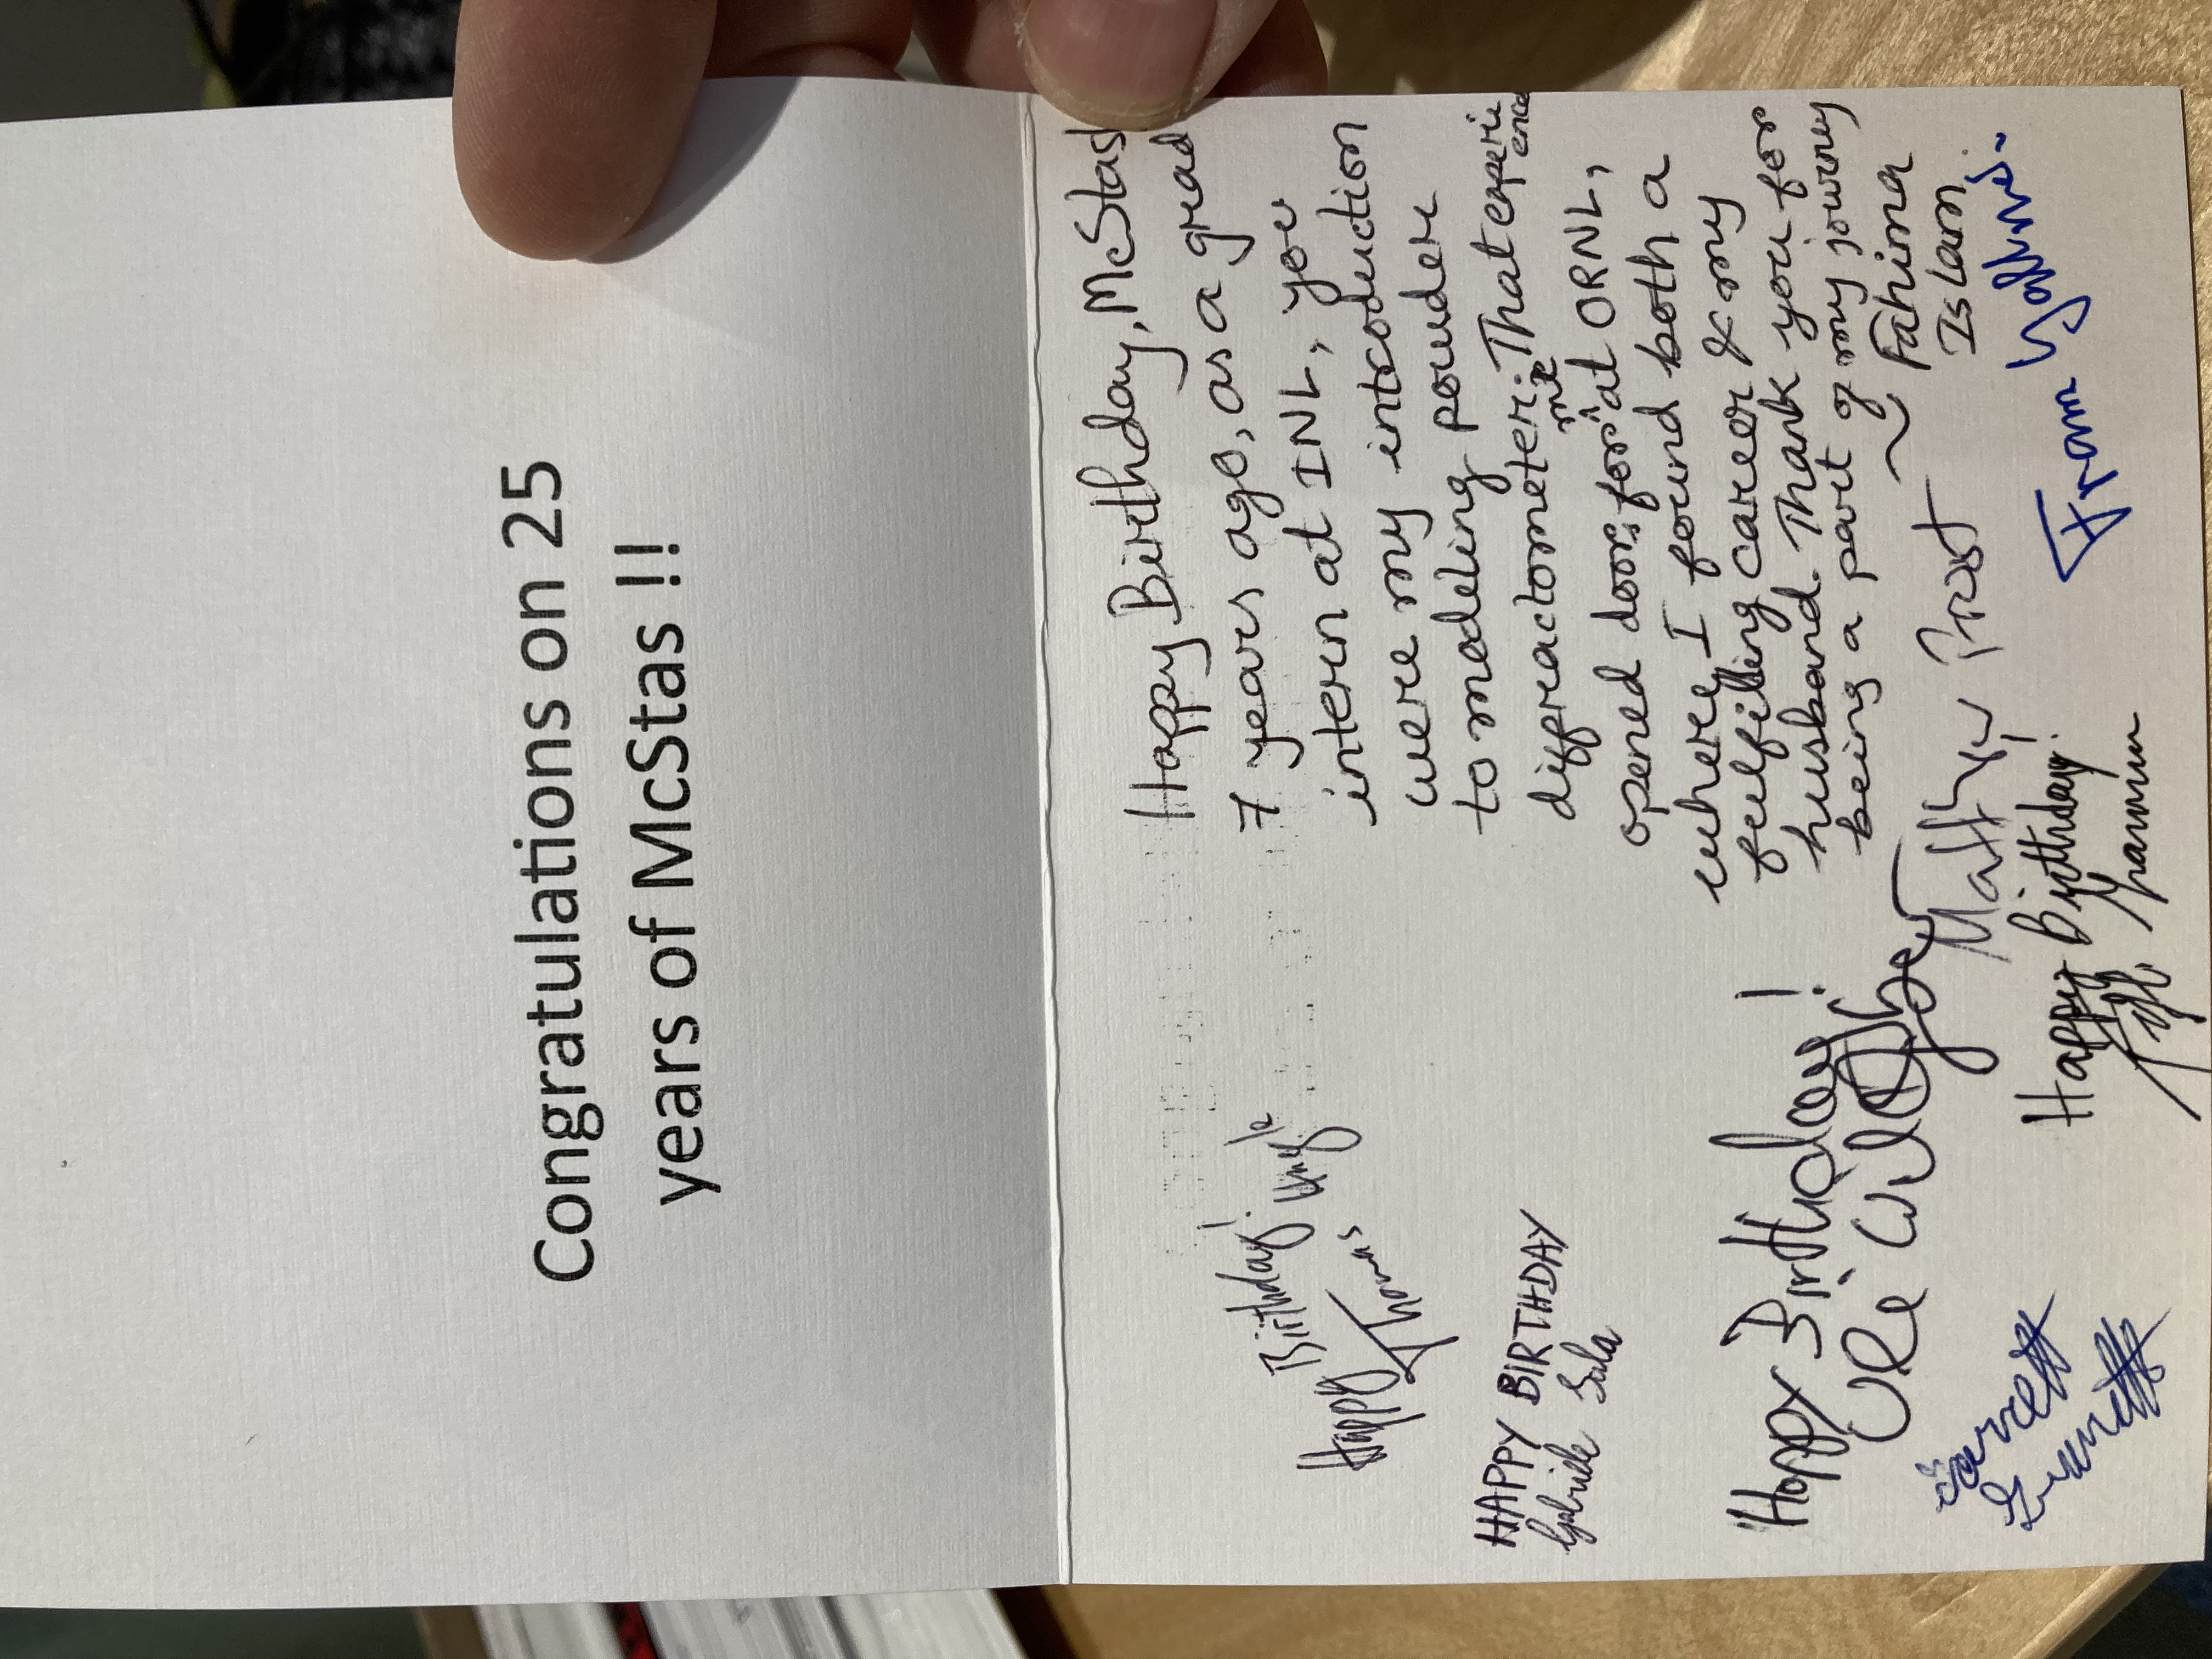 Congratulations on 25
years of McStas !!
Happy Birthday, McStas
7 years ago, as a grad
intern at INL, you
were my introduction
to modeling powder
diffractometer. That experience
opened doors for me at ORNL,
where I found both a
fulfilling career & my
husband. Thank you for
being a part of my journey
~ Fahima
Islam
Happy Birthday!
Thomas
HAPPY BIRTHDAY
Gabriele Sala
Happy Birthday!
Matthew Frost
Happy Birthday!
Garrett